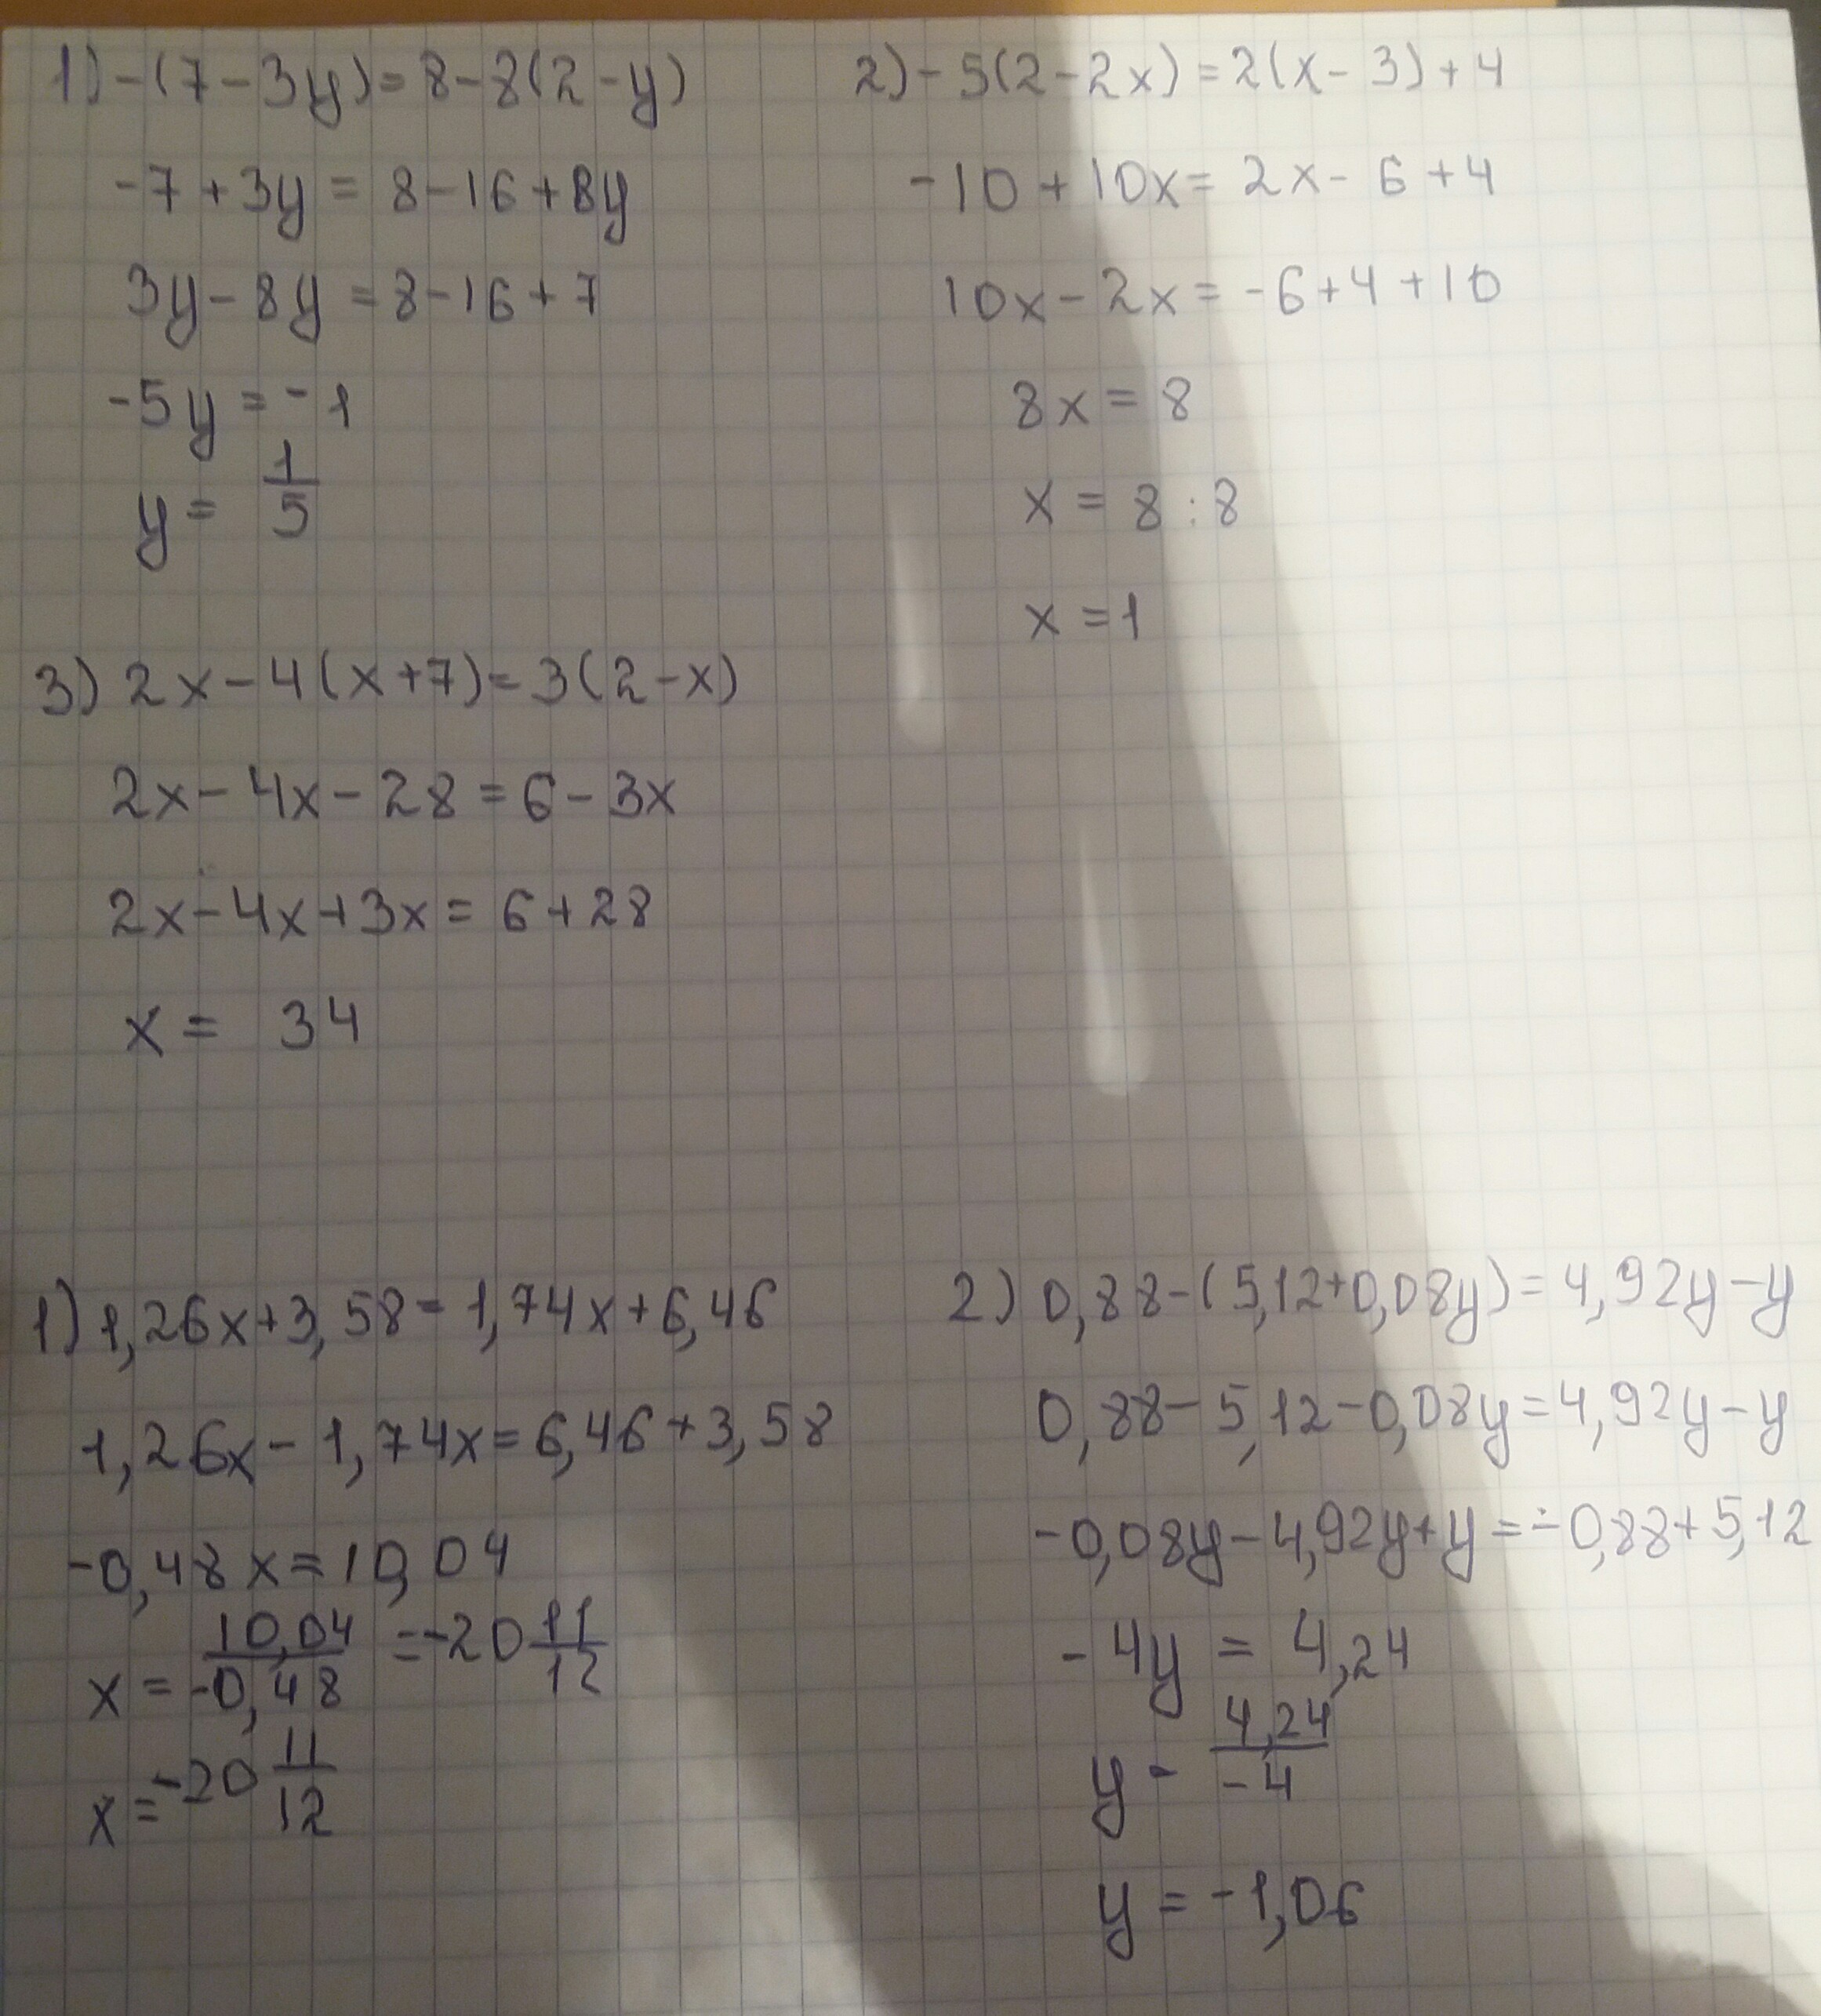 1) -(7-3y)=8-8(2-y)
-7+3y=8-16+8y
3y-8y=8-16+7
-5y=-1
y= 1/5
2) -5(2-2x)=2(x-3)+4
-10+10x=2x-6+4
10x-2x=-6+4+10
8x=8
x=8:8
x=1
3) 2x-4(x+7)=3(2-x)
2x-4x-28=6-3x
2x-4x+3x=6+28
x= 34
1) 1,26x+3,58=1,74x+6,46
1,26x-1,74x=6,46+3,58
-0,48x=10,04
x= 10,04/-0,48 =-20 11/12
x=-20 11/12
2) 0,88-(5,12+0,08y)=4,92y-y
0,88-5,12-0,08y=4,92y-y
-0,08y-4,92y+y=-0,88+5,12
-4y=4,24
y- 4,24/-4
y=-1,06